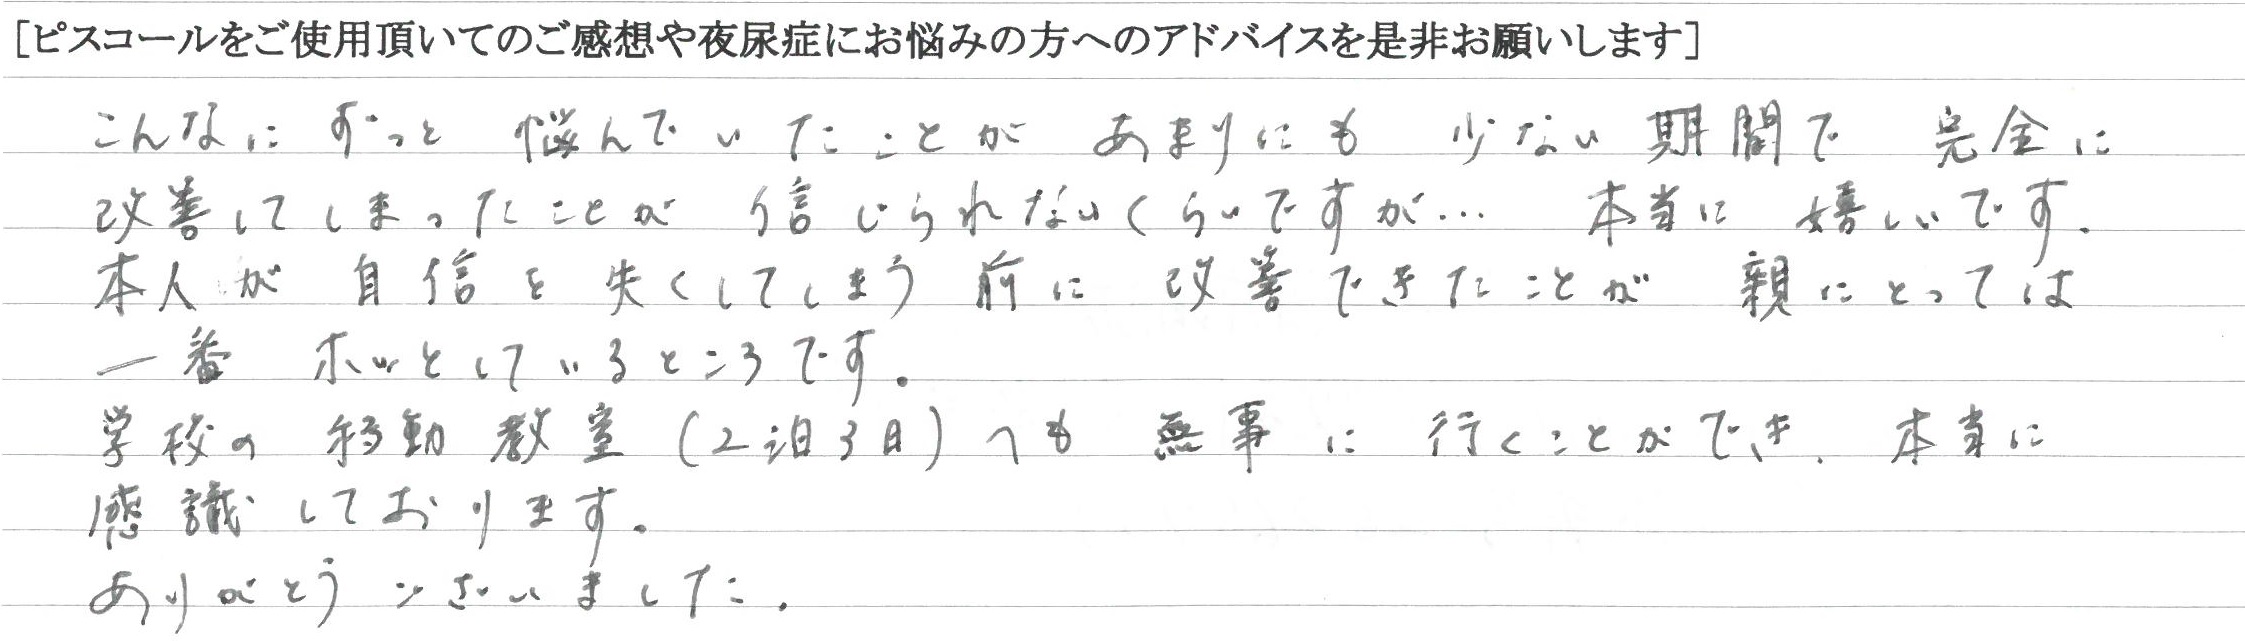 [ピスコールをご使用頂いてのご感想や夜尿症にお悩みの方へのアドバイスを是非お願いします]
こんなに ずっと 悩んでいたことが あまりにも 少ない 期間で 完全に
改善してしまったことが 信じられないくらいですが… 本当に 嬉しいです.
本人が 自信を 失くしてしまう 前に 改善できたことが 親にとっては
一番 ホッとしているところです。
学校の 移動 教室 (2泊3日) へも 無事に 行くことができ、本当に
感識しております。
ありがとうございました.